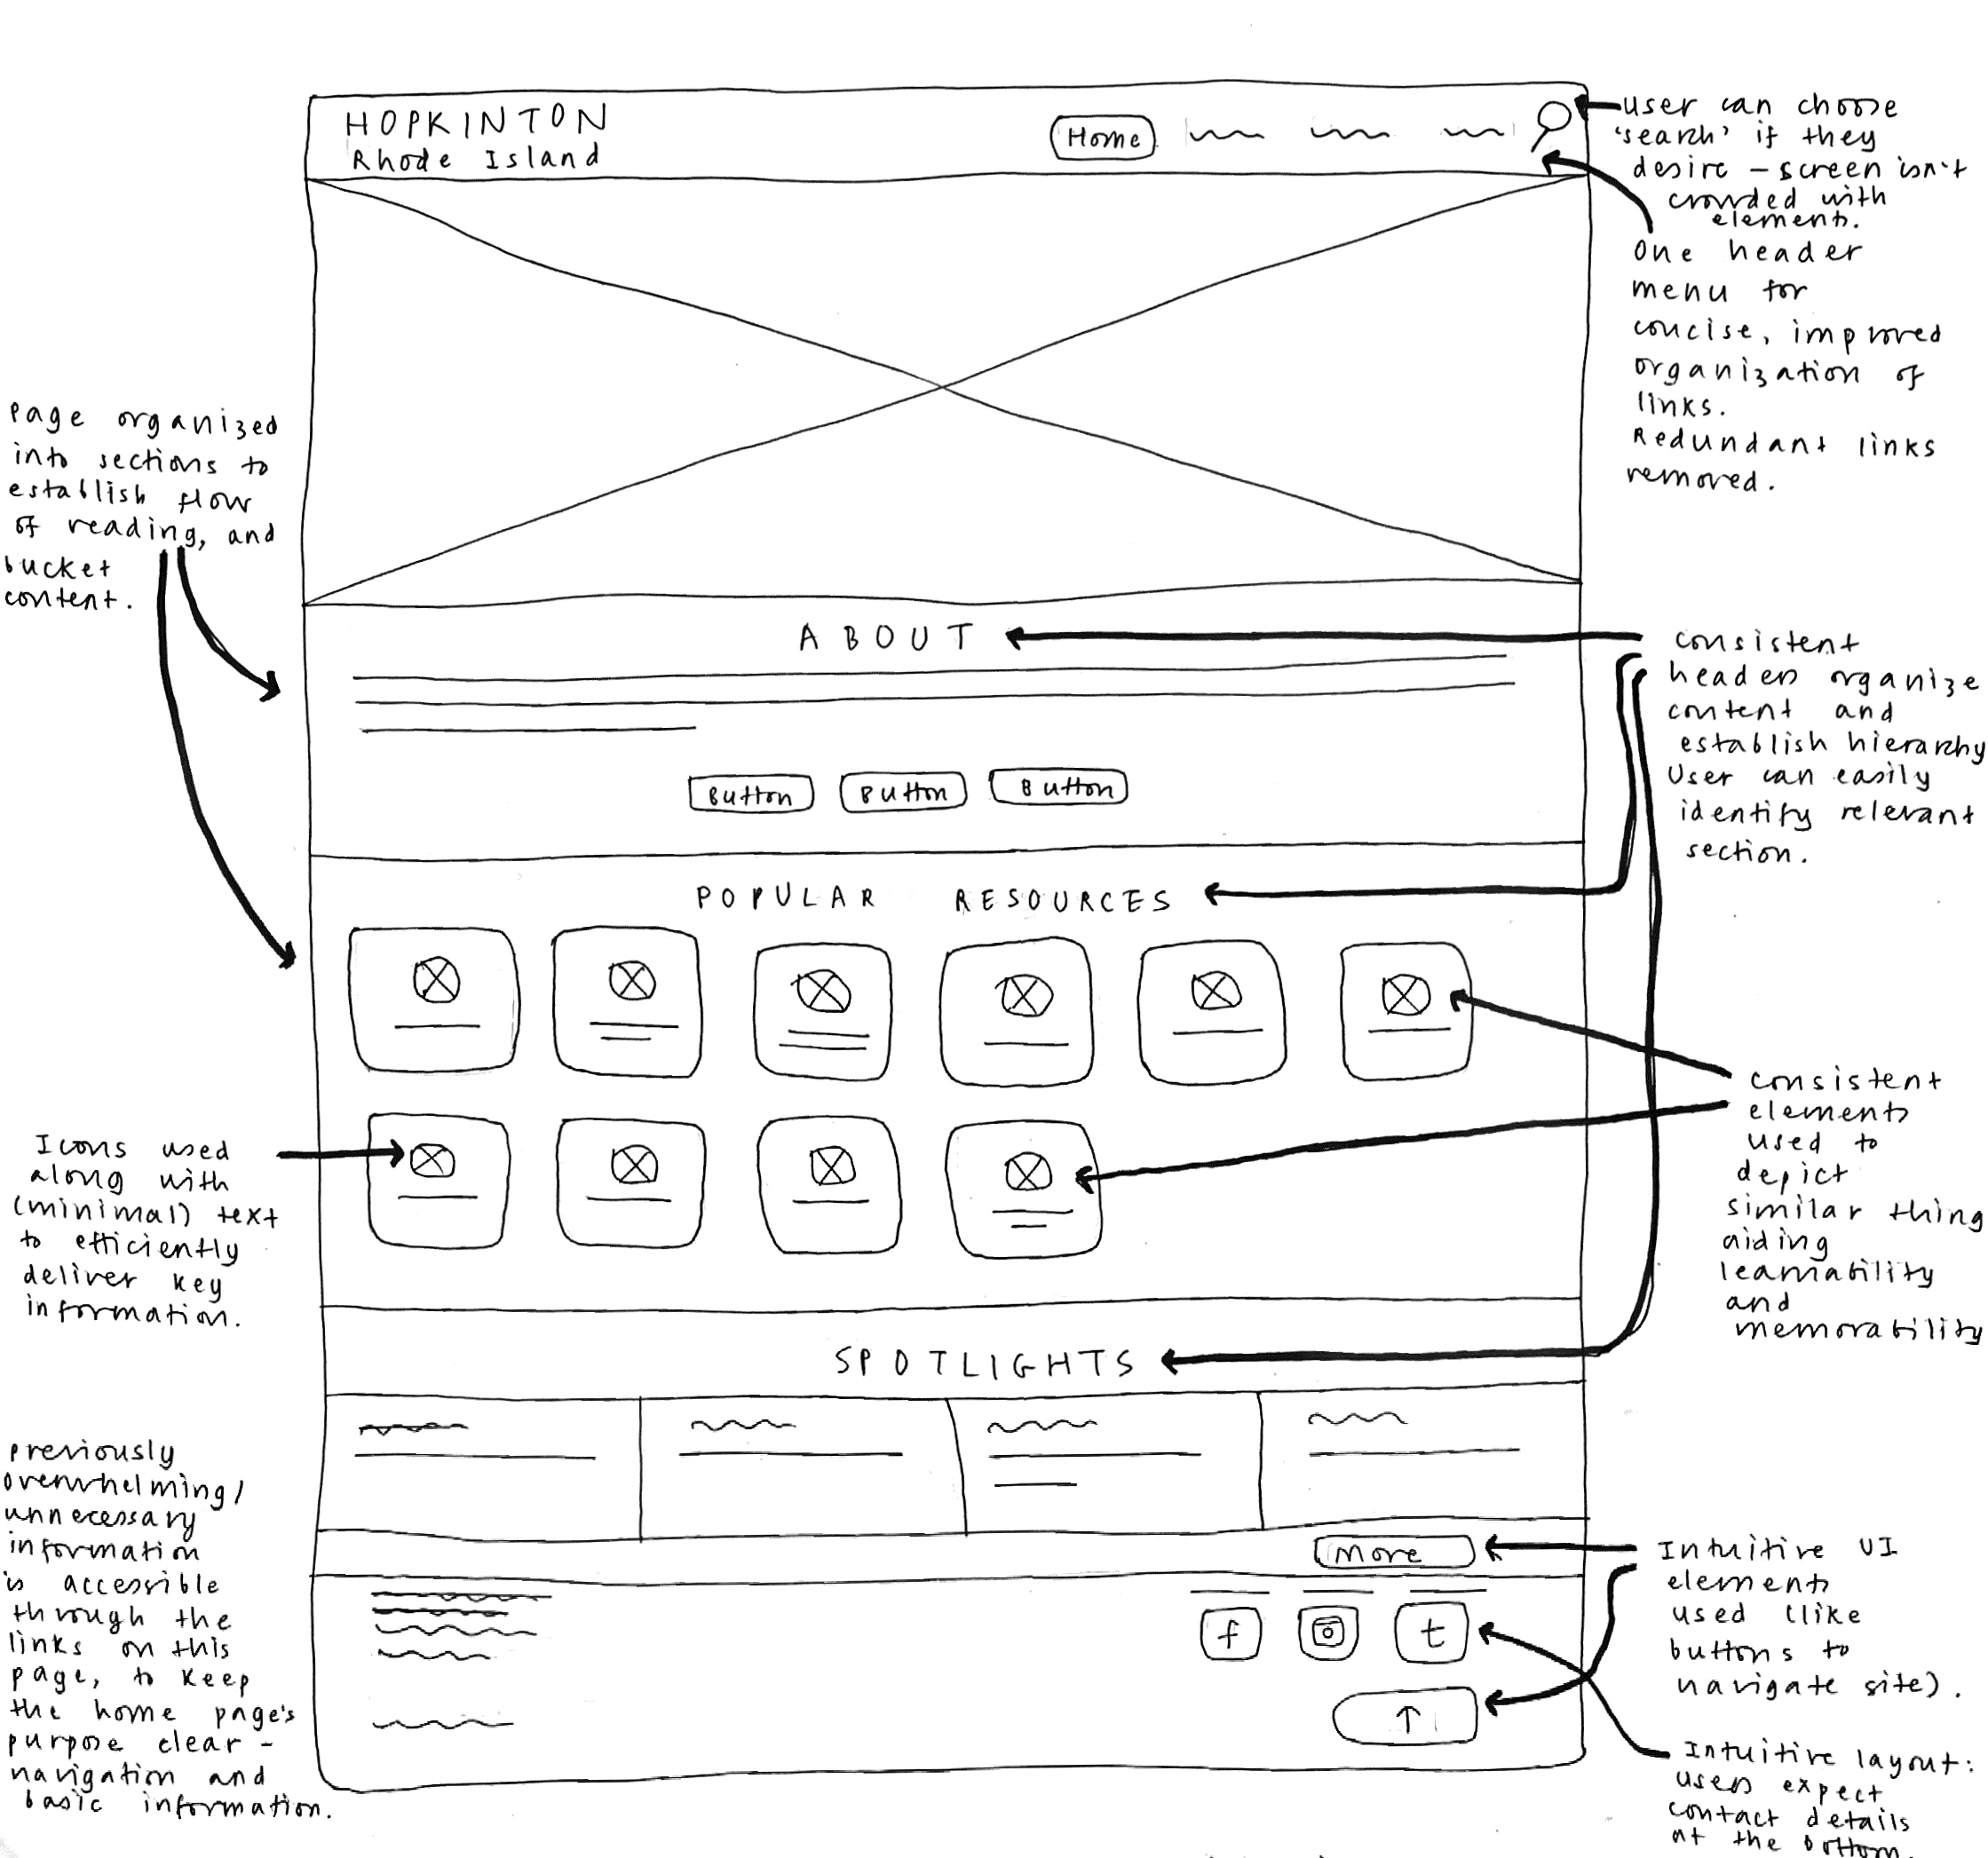 HOPKINTON
Rhode Island
Home
user can choose
'search' if they
desire – screen isn't
crowded with
elements.
One header
menu for
concise, improved
organization of
links.
Redundant links
removed.
Page organized
into sections to
establish flow
of reading, and
bucket
content.
ABOUT
Button Button Button
consistent
headers organize
content and
establish hierarchy
User can easily
identify relevant
section.
POPULAR RESOURCES
consistent
elements
used to
depict
similar thing
aiding
learnability
and
memorability
Icons used
along with
(minimal) text
to efficiently
deliver key
information.
SPOTLIGHTS
previously
overwhelming/
unnecessary
information
is accessible
through the
links on this
page, to keep
the home page's
purpose clear –
navigation and
basic information.
More
f
t
↑
Intuitive UI
elements
used (like
buttons to
navigate site).
Intuitive layout:
users expect
contact details
at the bottom.